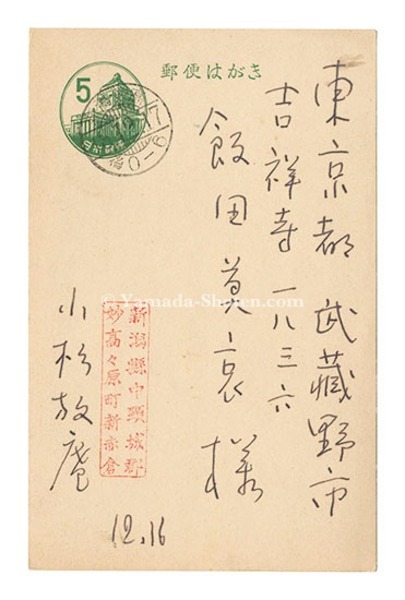 郵便はがき
5
東京都 武蔵野市
吉祥寺一八三六
飯田莫哀様
新潟縣中頸城郡
妙高々原町新赤倉
小杉放庵
12.16
© Yamada-Shoten.com